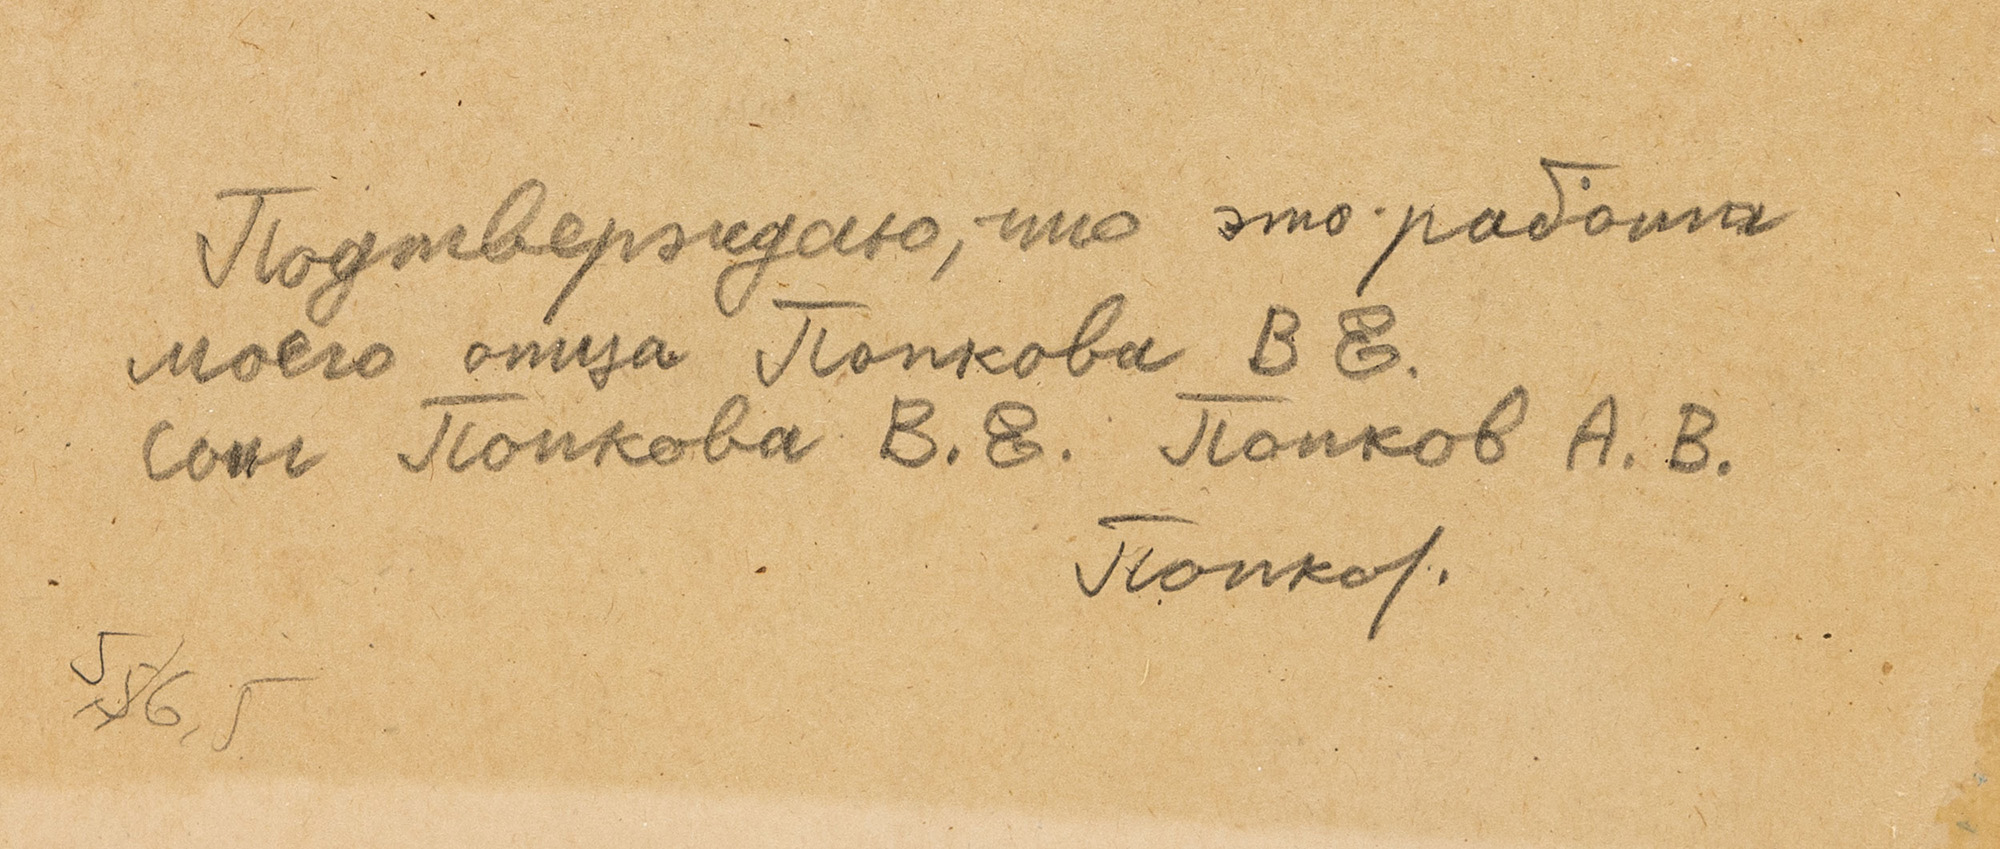 Подтверждаю, что это работа
моего отца Попкова В Е.
Сын Попкова В. Е. Попков А. В.
Попков.